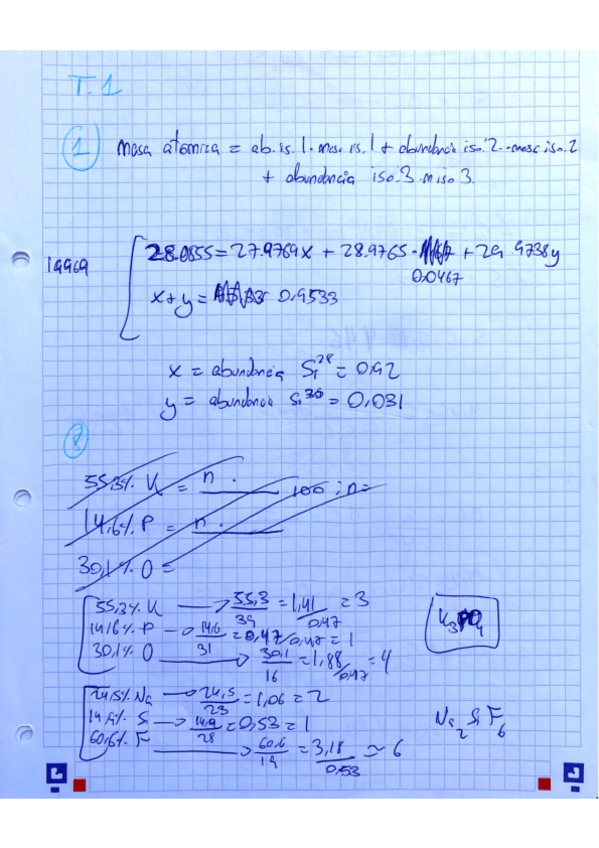 T.1
1 Masa atomica = ab.is.1 · mas. is.1 + abundancia iso.2 · masa iso.2
+ abundancia iso.3 · m iso 3.
28.0855 = 27.9769x + 28.9765 · 0.0467 + 29.9738y
x + y = 0,9533
x = abundancia Si²⁸ = 0,92
y = abundancia Si³⁰ = 0,031
8
55,3% K = n · 100 ; n =
14,6% P = n ·
30,1% O =
55,3% K → 55,3/39 = 1,41/0,47 = 3
14,6% P → 14,6/31 = 0,47/0,47 = 1
30,1% O → 30,1/16 = 1,88/0,47 = 4
K₃PO₄
24,5% Na → 24,5/23 = 1,06 = 2
14,9% Si → 14,9/28 = 0,53 = 1
60,6% F → 60,6/19 = 3,18/0,53 ≃ 6
Na₂SiF₆